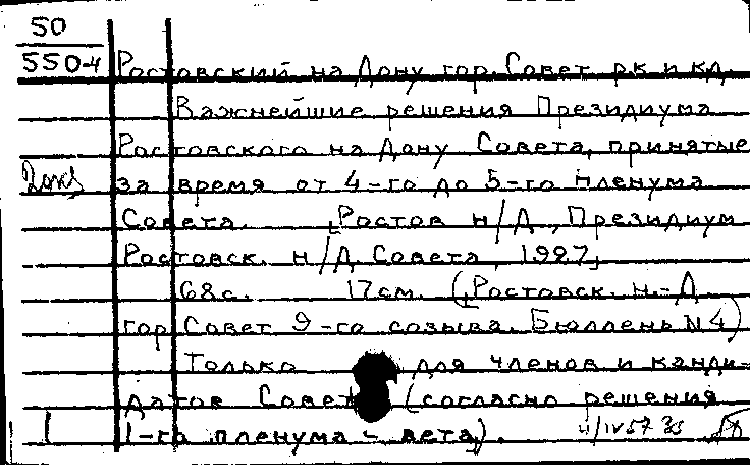 50
550-4 Ростовский на Дону гор. Совет рк и кд.
Важнейшие решения Президиума
Ростовского на Дону Совета, принятые
за время от 4-го до 5-го пленума
Совета. [Ростов н/Д, Президиум
Ростовск. н/Д. Совета, 1927]
68 с. 17 см. ([Ростовск. н.-Д.
гор. Совет 9-го созыва. Бюллень №4)
Только для членов и канди-
датов Совета (согласно решения
1-го пленума - вета).